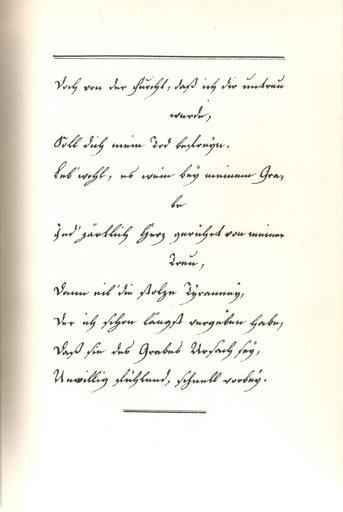 Doch von der Furcht, daß ich dir untreu
werde,
Soll dich mein Tod befreyn.
Leb' wohl, es wein' bey meinem Gra-
be
Jed' zärtlich Herz gerührt von meiner
Treu,
Dann eil' die stolze Tyranney,
Der ich schon längst vergeben habe,
Daß sie des Grabes Ursach sey,
Unwillig fühlend, schnell vorbey.